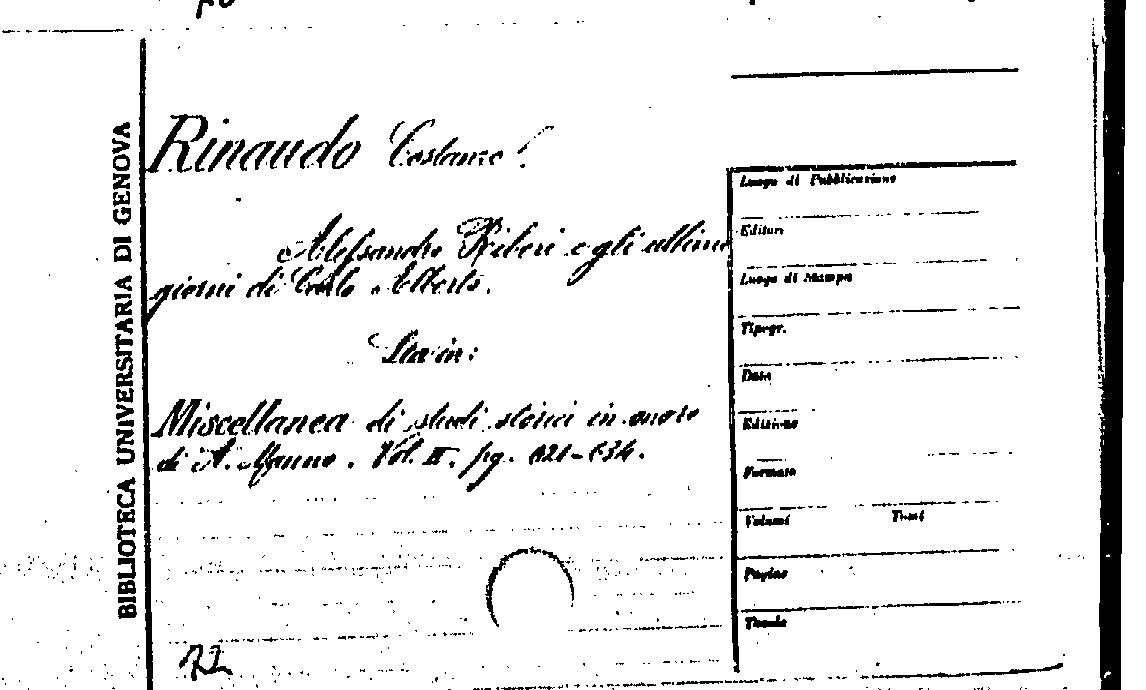 BIBLIOTECA UNIVERSITARIA DI GENOVA
Rinaudo Costanzo.
Alessandro Riberi e gli ultimi
giorni di Carlo Alberto.
Sta in:
Miscellanea di studi storici in onore
di A. Manno. Vol. II. pg. 621-634.
72
Luogo di Pubblicazione
Editori
Luogo di Stampa
Tipogr.
Data
Edizione
Formato
Volumi Tomi
Pagine
Tavole